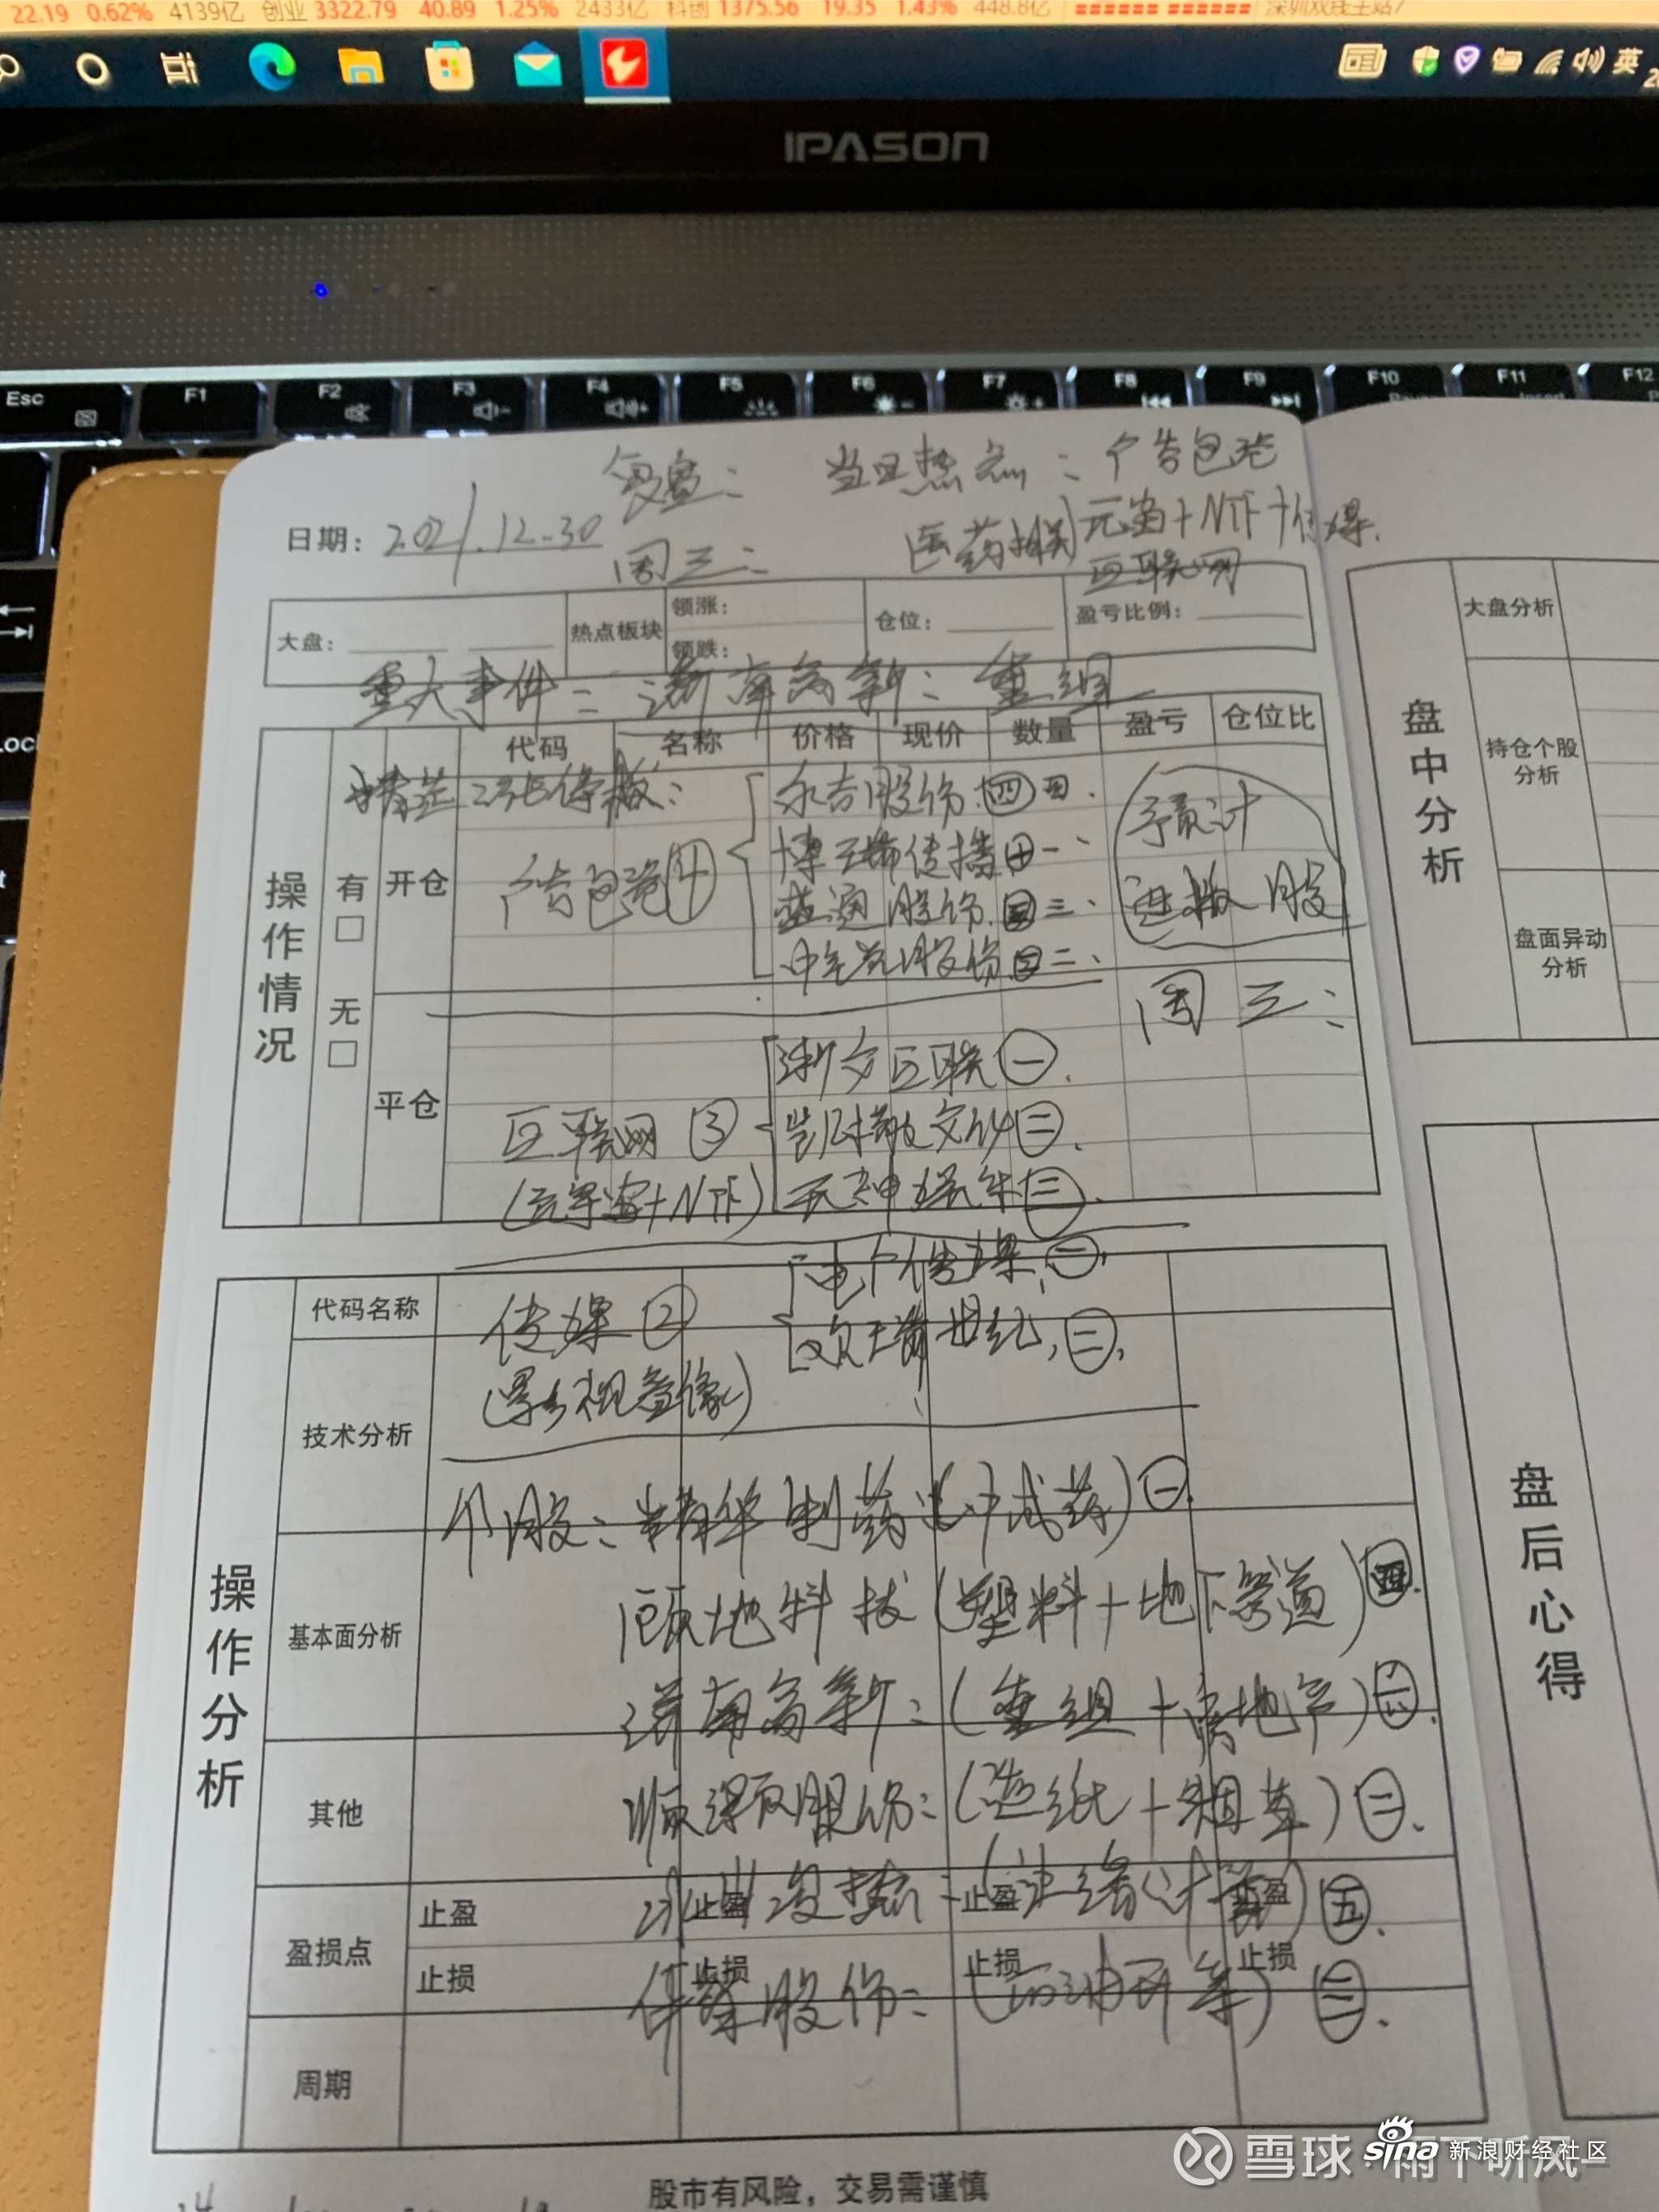 22.19 0.62% 4139亿 创业 3322.79 40.89 1.25% 2433亿 科创 1375.56 19.35 1.43% 448.8亿
英
IPASON
Esc F1 F2 F3 F4 F5 F6 F7 F8 F9 F10 F11 F12
复盘: 当日热点: 广告包装
日期: 2021.12.30
周三: 医药相关 元宙+NTF+传媒.
互联网
大盘: 热点板块 领涨: 领跌: 仓位: 盈亏比例:
重大事件: 济南高新: 重组
代码 名称 价格 现价 数量 盈亏 仓位比
操作情况
有 无
开仓
平仓
涨停板:
广告包装④
永吉股份 四
博瑞传播 一
盛通股份 三
中锐股份 二
预计
进板股
周三:
互联网③
(元宇宙+NTF)
浙文互联㊀.
凯撒文化㊁.
天神娱乐㊂.
传媒②
(影视音像)
电广传媒,㊁,
欢瑞世纪,㊁,
操作分析
代码名称
技术分析
基本面分析
其他
盈损点
止盈 止盈 止盈 止盈
止损 止损 止损 止损
周期
个股: 精华制药(中成药)㊀.
顾地科技(塑料+地下管道)㊃.
济南高新:(重组+房地产)
顺灏股份:(造纸+烟草)㊁.
(边缘计算)㊄.
股份: ㊂.
盘中分析
大盘分析
持仓个股分析
盘面异动分析
盘后心得
股市有风险，交易需谨慎
雪球·雨下听风
sina 新浪财经社区